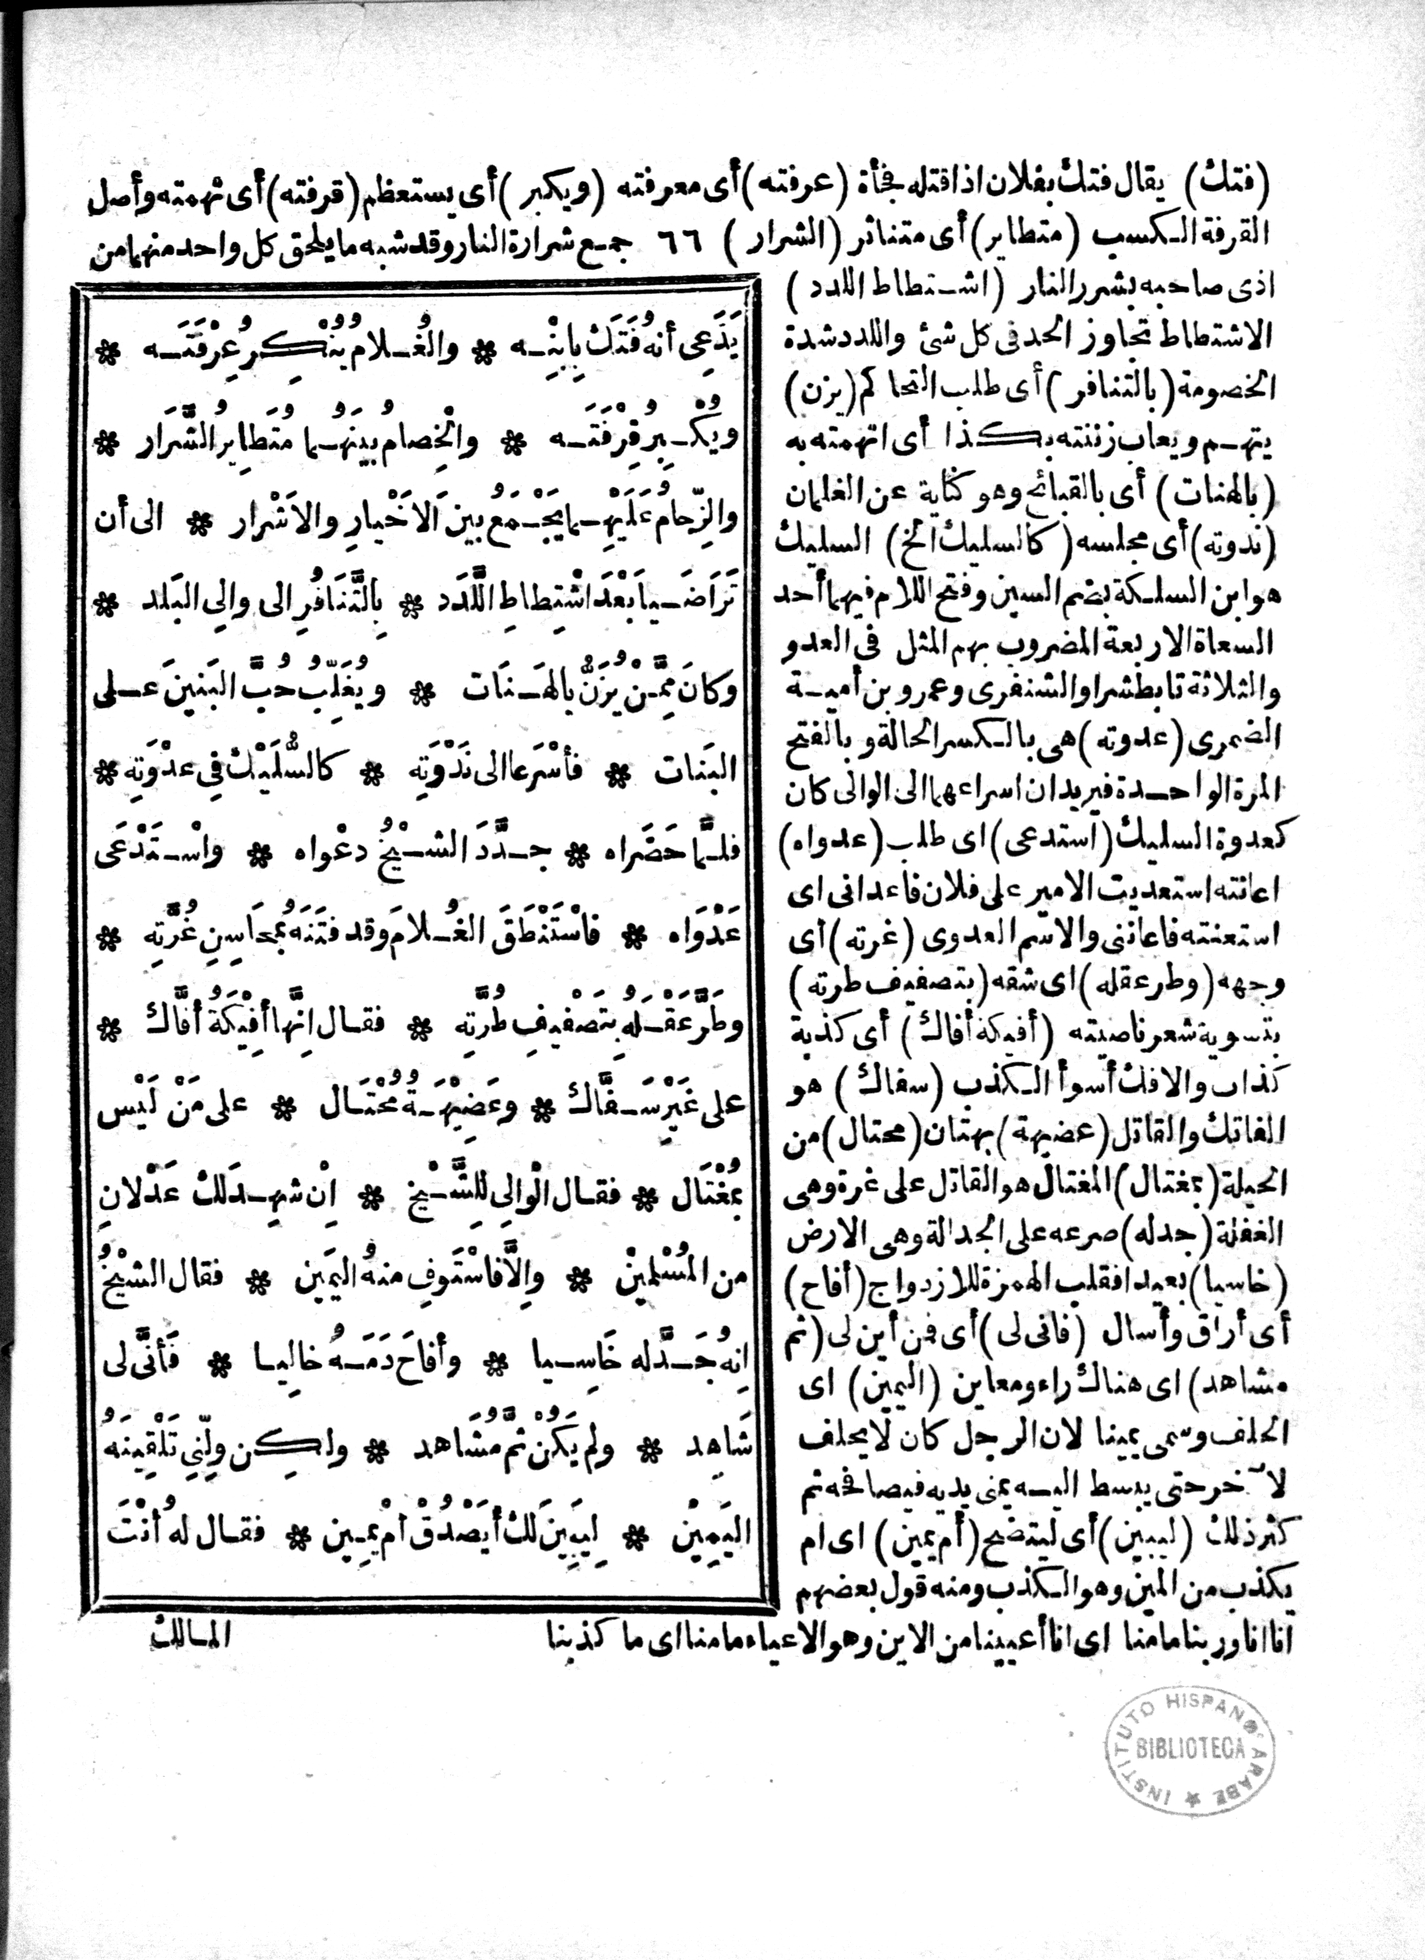 (فتك) يقال فتك بفلان اذا قتله فجأة (عرفته) أى معرفته (ويكبر) أى يستعظم (قرفته) أى تهمته وأصل
القرفة الكسب (متطاير) أى متناثر (الشرار) ٦٦ جمع شرارة النار وقد شبه ما يلحق كل واحد منهما من
اذى صاحبه بشرر النار (اشتطاط اللدد)
الاشتطاط تجاوز الحد فى كل شئ واللدد شدة
الخصومة (بالتنافر) أى طلب التحاكم (يزن)
يتهم ويعاب زننته بكذا أى اتهمته به
(بالهنات) أى بالقبائح وهو كناية عن الغلمان
(ندوته) أى مجلسه (كالسليك الخ) السليك
هو ابن السلكة بضم السين وفتح اللام فيهما أحد
السعاة الاربعة المضروب بهم المثل فى العدو
والثلاثة تابط شرا والشنفرى وعمرو بن أمية
الضمرى (عدوته) هى بالكسر الحالة وبالفتح
المرة الواحدة فيريد ان اسراعهما الى الوالى كان
كعدوة السليك (استدعى) اى طلب (عدواه)
اعانته استعديت الامير على فلان فاعدانى اى
استعنته فاعاننى والاسم العدوى (غرته) أى
وجهه (وطر عقله) اى شقه (بتصفيف طرته)
بتسوية شعر ناصيته (أفيكة أفاك) أى كذبة
كذاب والافك أسوأ الكذب (سفاك) هو
الفاتك والقاتل (عضيهة) بهتان (محتال) من
الحيلة (بمغتال) المغتال هو القاتل على غرة وهى
الغفلة (جدله) صرعه على الجدالة وهى الارض
(خاسيا) بعيدا فقلب الهمزة للازدواج (أفاح)
أى أراق وأسال (فانى لى) أى فمن أين لى (ثم
مشاهد) اى هناك راء ومعاين (اليمين) اى
الحلف وسمى يمينا لان الرجل كان لا يحلف
لآخر حتى يبسط اليه يمنى يديه فيصافحه ثم
كثر ذلك (ليبين) أى ليتضح (أم يمين) اى ام
يكذب من المين وهو الكذب ومنه قول بعضهم
انا انا وربنا مامنا اى انا أعيينا من الاين وهو الاعياء مامنا اى ما كذبنا
يَدَّعِى أنهُ فَتَكَ بِابْنِه ❋ والغُلامُ يُنْكِرُ عِرْفَتَه ❋
ويُكْبِرُ قِرْفَتَه ❋ والْخِصامُ بينَهُما مُتَطايِرُ الشَّرَار ❋
والزِّحامُ عَلَيْهِما يَجْمَعُ بينَ الاَخْيارِ والاَشْرار ❋ الى أن
تَرَاضَيا بَعْدَ اشْتِطاطِ اللَّدَد ❋ بِالتَّنَافُرِ الى والِي البَلد ❋
وكانَ مِمَّنْ يُزَنُّ بالهَنَات ❋ ويُغَلِّبُ حُبَّ البَنينَ على
البَنات ❋ فأسْرَعا الى نَدْوَتِه ❋ كالسُّلَيْكِ فِي عدْوَتِه ❋
فلمَّا حَضَراه ❋ جدَّدَ الشيْخُ دعْواه ❋ واسْتَدْعَى
عَدْوَاه ❋ فاسْتَنْطَقَ الغُلامَ وقد فتَنَهُ بمحَاسِنِ غُرَّتِه ❋
وطَرَّ عَقْلَهُ بِتَصْفيفِ طُرَّتِه ❋ فقال اِنَّها أفِيْكَةُ أفَّاك ❋
على غَيْرِ سَفَّاك ❋ وعَضِيْهَةُ مُحْتَال ❋ على مَنْ لَيْسَ
بمُغْتَال ❋ فقال الْوالِى لِلشَّيْخِ ❋ اِنْ شهِدَ لكَ عَدْلانِ
من المُسْلِمِيْن ❋ وإلَّا فاسْتَوْفِ منهُ اليمَين ❋ فقال الشيْخُ
اِنهُ جَدَّله خَاسِيا ❋ وأفاحَ دَمَهُ خالِيا ❋ فَأنَّى لى
شَاهِد ❋ ولم يَكُنْ ثمَّ مُشَاهد ❋ ولكِن ولِّنِي تَلْقِينَهُ
اليَمِيْن ❋ لِيَبِينَ لكَ أيَصْدُقُ أمْ يَمِين ❋ فقال لهُ أنْتَ
المالك
INSTITUTO HISPANO ARABE
BIBLIOTECA